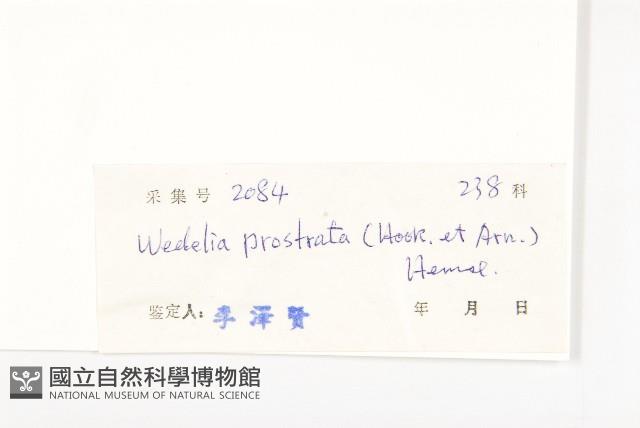 采集号 2084 238 科
Wedelia prostrata (Hook. et Arn.)
Hemsl.
鉴定人: 李泽贤 年 月 日
國立自然科學博物館
NATIONAL MUSEUM OF NATURAL SCIENCE